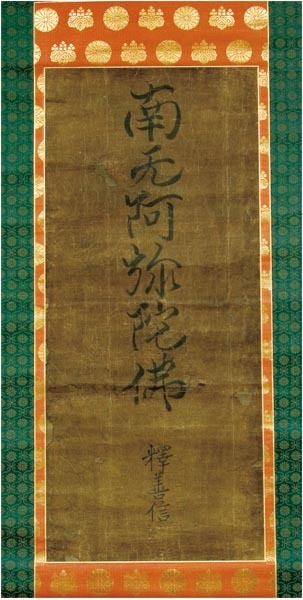 南无阿弥陀佛
釋善信